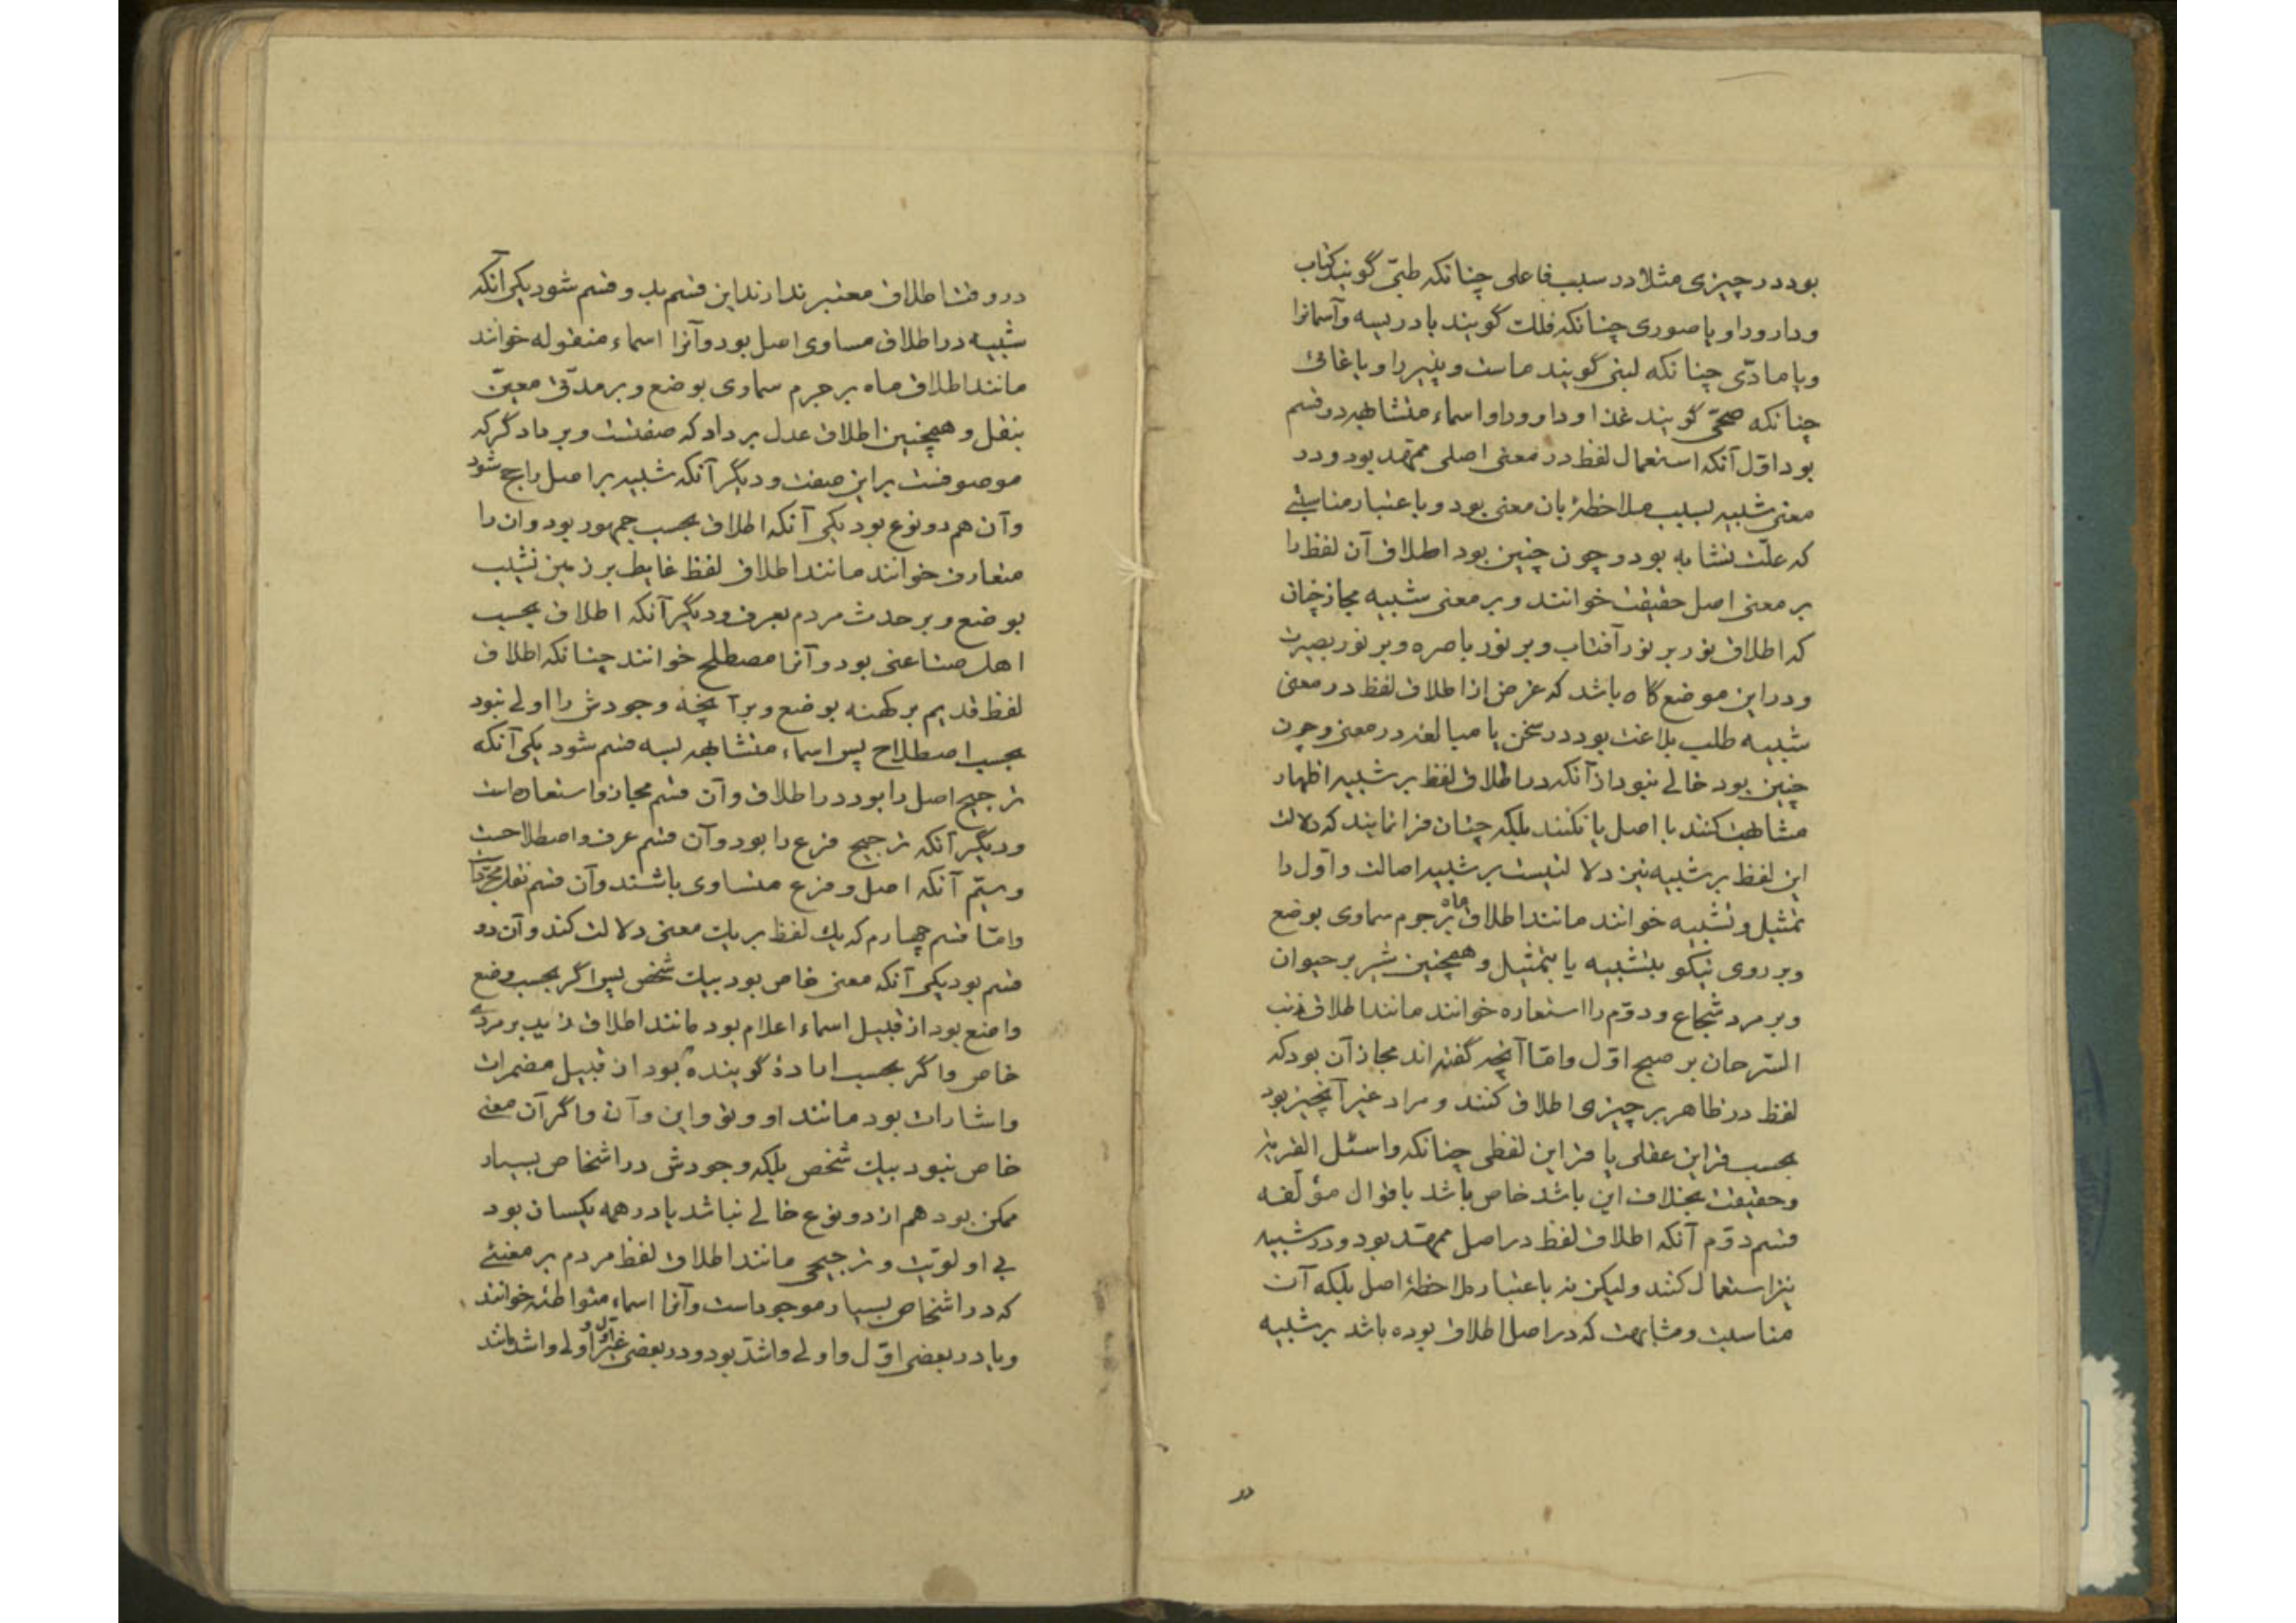 بود در چیزی مثلا در سبب فاعلی چنانکه طبّی گویند کتاب
و دارو را و یا صوری چنانکه فلک گویند بادریسه و آسمانرا
و یا مادّی چنانکه لبنی گویند ماست و پنیر را و یا غائی
چنانکه صحّی گویند غذا و دارو را و اسماء متشابهه دو قسم
بود اوّل آنکه استعمال لفظ در معنی اصلی ممهّد بود و در
معنی شبیه بسبب ملاحظهٔ بان معنی بود و باعتبار مناسبتی
که علّت تشابه بود و چون چنین بود اطلاق آن لفظ را
بر معنی اصل حقیقت خوانند و بر معنی شبیه مجاز چنان
که اطلاق نور بر نور آفتاب و بر نور باصره و بر نور بصیرت
و در این موضع گاه باشد که غرض از اطلاق لفظ در معنی
شبیه طلب بلاغت بود در سخن یا مبالغه در معنی و چون
چنین بود خالی نبود از آنکه در اطلاق لفظ بر شبیه اظهار
مشابهت کنند با اصل یا نکنند بلکه چنان فرا نمایند که دلالت
این لفظ بر شبیه نیز دلالتیست بر شبیه اصالت و اوّل را
تمثیل و تشبیه خوانند مانند اطلاق ماه بر جرم سماوی بوضع
و بر روی نیکو بتشبیه یا بتمثیل و همچنین شیر بر حیوان
و بر مرد شجاع و دوّم را استعاره خوانند مانند اطلاق ذنب
السّرحان بر صبح اوّل و امّا آنچه گفته‌اند مجاز آن بود که
لفظ در ظاهر بر چیزی اطلاق کنند و مراد غیر آنچیز بود
بحسب قراین عقلی یا قراین لفظی چنانکه واسئل القریة
و حقیقت بخلاف این باشد خاص باشد باقوال مؤلّفه
قسم دوّم آنکه اطلاق لفظ در اصل ممهّد بود و در شبیه
نیز استعمال کنند و لیکن نه باعتبار ملاحظهٔ اصل بلکه آن
مناسبت و مشابهت که در اصل اطلاق بوده باشد بر شبیه
در
در وقت اطلاق معتبر ندارند این قسم بدو قسم شود یکی آنکه
شبیه در اطلاق مساوی اصل بود و آنرا اسماء منقوله خوانند
مانند اطلاق ماه بر جرم سماوی بوضع و بر مدّتی معیّن
بنقل و همچنین اطلاق عدل بر داد که صفتست و بر دادگر که
موصوفست بر این صفت و دیگر آنکه شبیه بر اصل راجح شود
و آن هم دو نوع بود یکی آنکه اطلاق بحسب جمهور بود و ان را
متعارف خوانند مانند اطلاق لفظ غایط بر زمین نشیب
بوضع و بر حدث مردم بعرف و دیگر آنکه اطلاق بحسب
اهل صناعتی بود و آنرا مصطلح خوانند چنانکه اطلاق
لفظ قدیم بر کهنه بوضع و بر آنچه وجودش را اولی نبود
بحسب اصطلاح پس اسماء متشابهه بسه قسم شود یکی آنکه
ترجیح اصل را بود در اطلاق و آن قسم مجاز و استعاره است
و دیگر آنکه ترجیح فرع را بود و آن قسم عرف و اصطلاحست
و سیّم آنکه اصل و فرع متساوی باشند و آن قسم نقل مجرّد است
و امّا قسم چهارم که یک لفظ بر یک معنی دلالت کند و آن دو
قسم بود یکی آنکه معنی خاص بود بیک شخص پس اگر بحسب وضع
واضع بود از قبیل اسماء اعلام بود مانند اطلاق زید بر مردی
خاص و اگر بحسب ارادهٔ گوینده بود از قبیل مضمرات
و اشارات بود مانند او و تو و این و آن و اگر آن معنی
خاص نبود بیک شخص بلکه وجودش در اشخاص بسیار
ممکن بود هم از دو نوع خالی نباشد یا در همه یکسان بود
بی اولویّت و ترجیحی مانند اطلاق لفظ مردم بر معنئی
که در اشخاص بسیار موجود است و آنرا اسماء متواطئه خوانند
و یا در بعضی اوّل و اولی و اشدّ بود و در بعضی غیر اوّل و اولی و اشد مانند